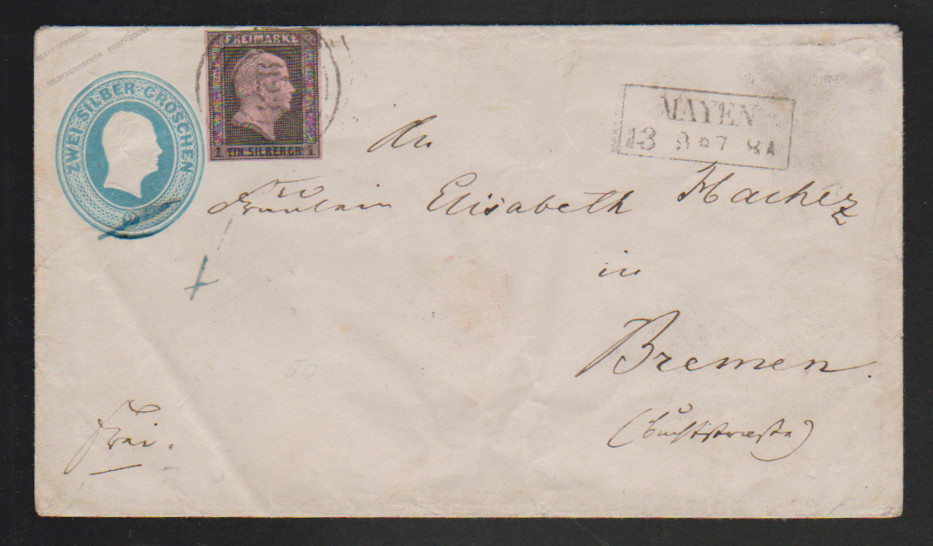 ZWEI SILBER GROSCHEN
FREIMARKE
1 EIN SILBERGR. 1
MAYEN
13 9 *7 8 A
An
Fräulein Elisabeth
in
Bremen.
(Buchtstraße)
Frei.